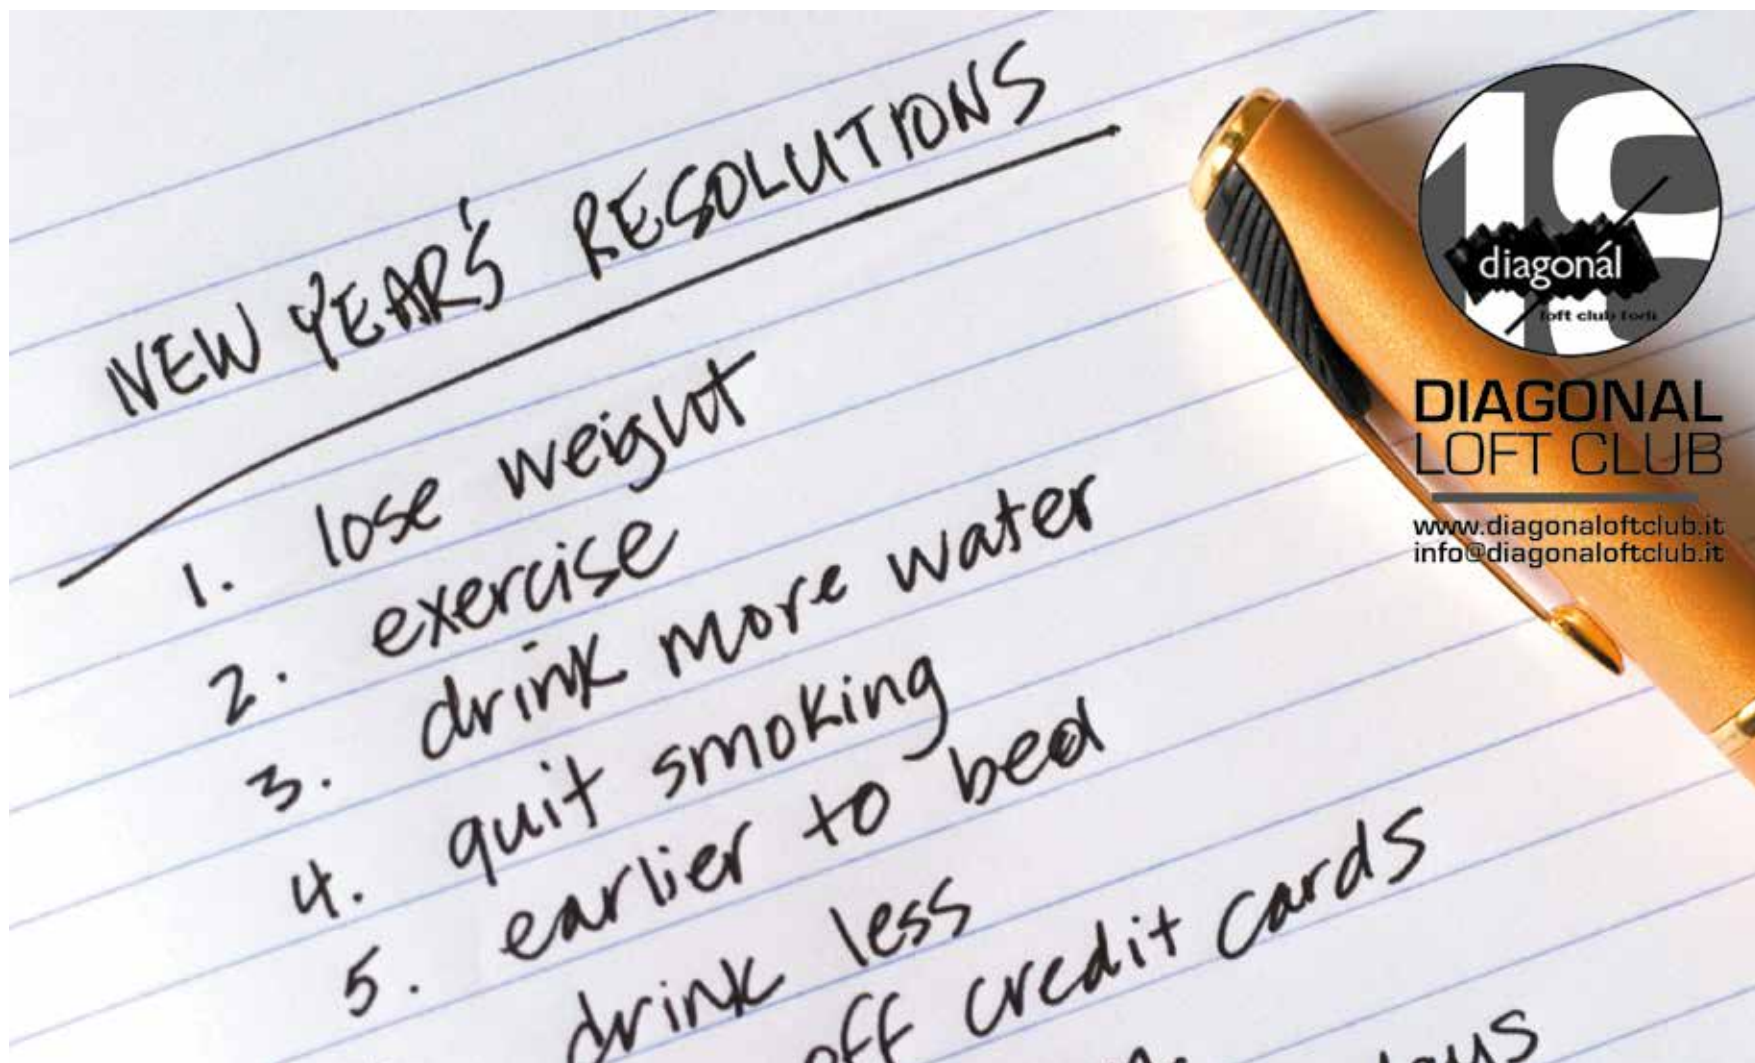 NEW YEAR'S RESOLUTIONS
1. lose weight
2. exercise
3. drink more water
4. quit smoking
5. earlier to bed
drink less
off credit cards
diagonál
loft club forlì
DIAGONAL
LOFT CLUB
www.diagonaloftclub.it
info@diagonaloftclub.it